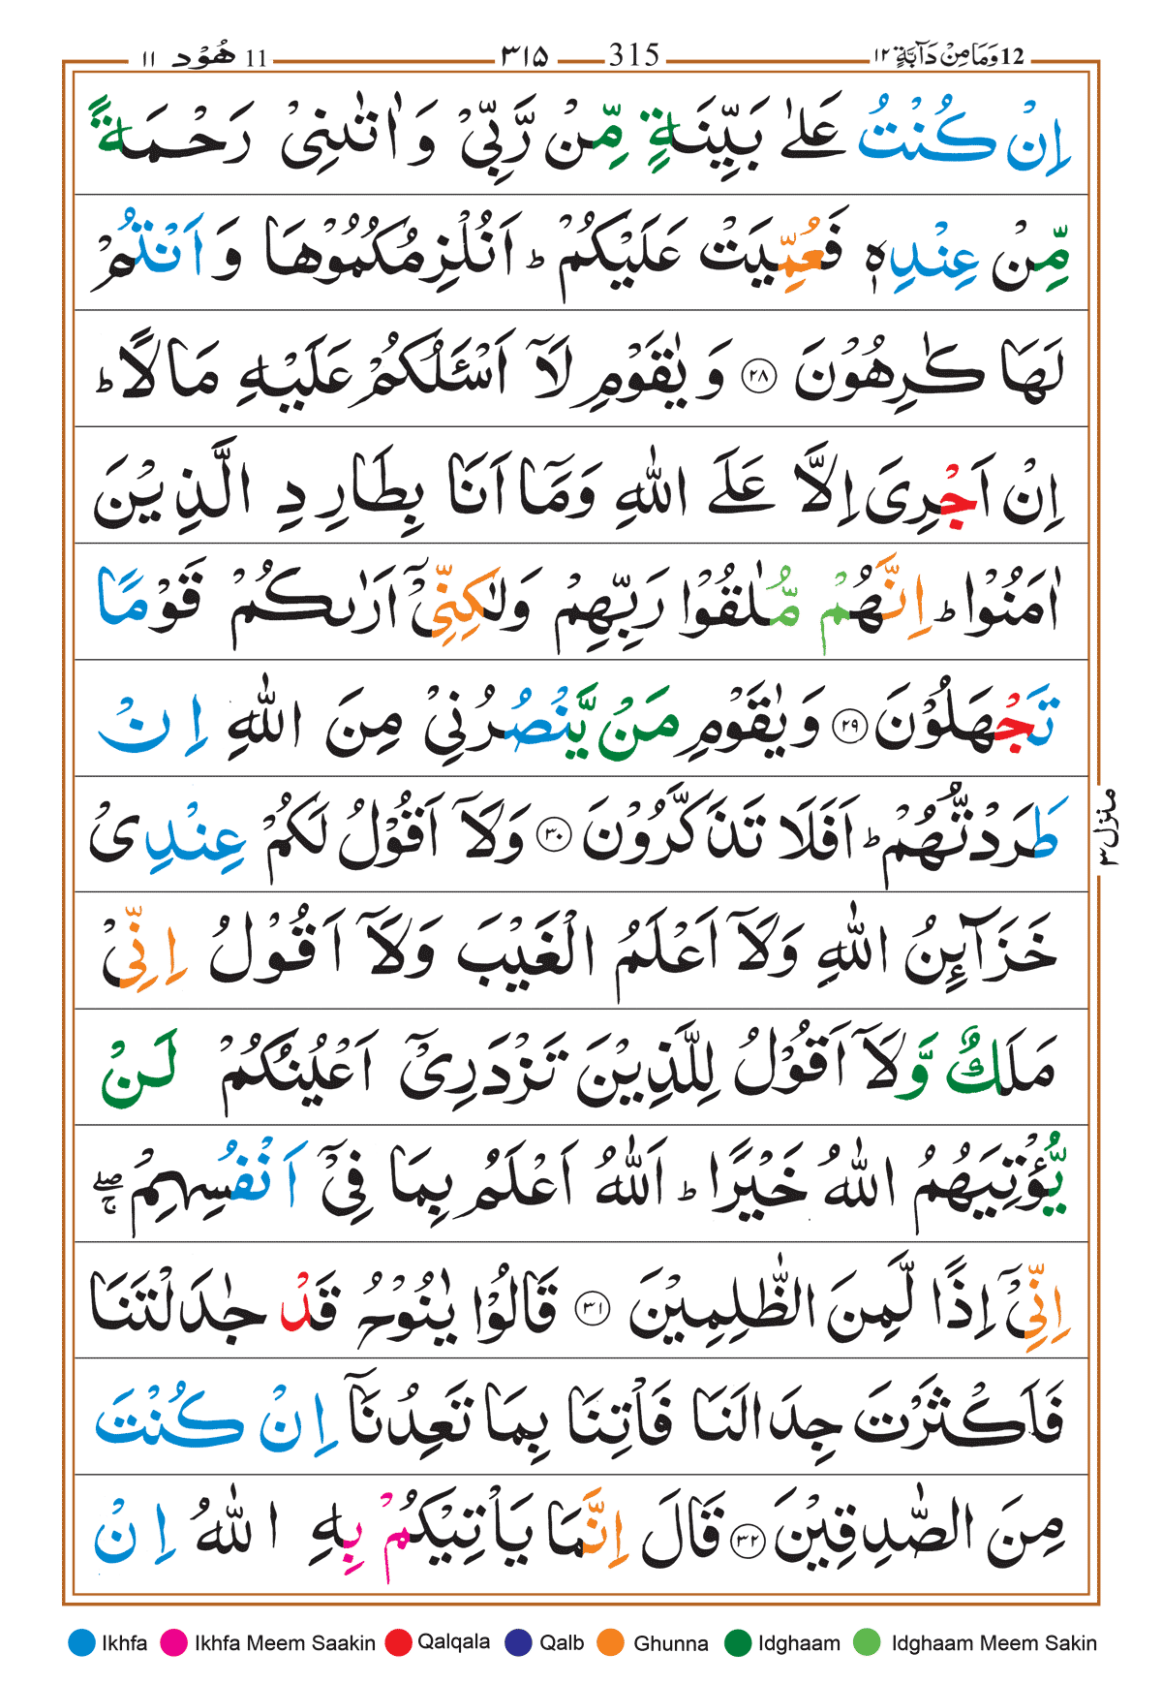 12 وَمَا مِنْ دَآبَّةٍ ۱۲ 315 ۳۱۵ 11 هُوْد ۱۱
اِنْ كُنْتُ عَلٰى بَيِّنَةٍ مِّنْ رَّبِّىْ وَ اٰتٰىنِىْ رَحْمَةً
مِّنْ عِنْدِهٖ فَعُمِّيَتْ عَلَيْكُمْ ؕ اَنُلْزِمُكُمُوْهَا وَ اَنْتُمْ
لَهَا كٰرِهُوْنَ ۲۸ وَ يٰقَوْمِ لَاۤ اَسْـَٔلُكُمْ عَلَيْهِ مَالًا ؕ
اِنْ اَجْرِىَ اِلَّا عَلَى اللّٰهِ وَمَاۤ اَنَا بِطَارِدِ الَّذِيْنَ
اٰمَنُوْا ؕ اِنَّهُمْ مُّلٰقُوْا رَبِّهِمْ وَلٰكِنِّىْۤ اَرٰىكُمْ قَوْمًا
تَجْهَلُوْنَ ۲۹ وَ يٰقَوْمِ مَنْ يَّنْصُرُنِىْ مِنَ اللّٰهِ اِنْ
طَرَدْتُّهُمْ ؕ اَفَلَا تَذَكَّرُوْنَ ۳۰ وَلَاۤ اَقُوْلُ لَكُمْ عِنْدِىْ
خَزَآئِنُ اللّٰهِ وَلَاۤ اَعْلَمُ الْغَيْبَ وَلَاۤ اَقُوْلُ اِنِّىْ
مَلَكٌ وَّلَاۤ اَقُوْلُ لِلَّذِيْنَ تَزْدَرِىْۤ اَعْيُنُكُمْ لَنْ
يُّؤْتِيَهُمُ اللّٰهُ خَيْرًا ؕ اَللّٰهُ اَعْلَمُ بِمَا فِىْۤ اَنْفُسِهِمْ ۖۚ
اِنِّىْۤ اِذًا لَّمِنَ الظّٰلِمِيْنَ ۳۱ قَالُوْا يٰنُوْحُ قَدْ جٰدَلْتَنَا
فَاَكْثَرْتَ جِدَالَنَا فَاْتِنَا بِمَا تَعِدُنَاۤ اِنْ كُنْتَ
مِنَ الصّٰدِقِيْنَ ۳۲ قَالَ اِنَّمَا يَاْتِيْكُمْ بِهِ اللّٰهُ اِنْ
منزل ۳
Ikhfa Ikhfa Meem Saakin Qalqala Qalb Ghunna Idghaam Idghaam Meem Sakin